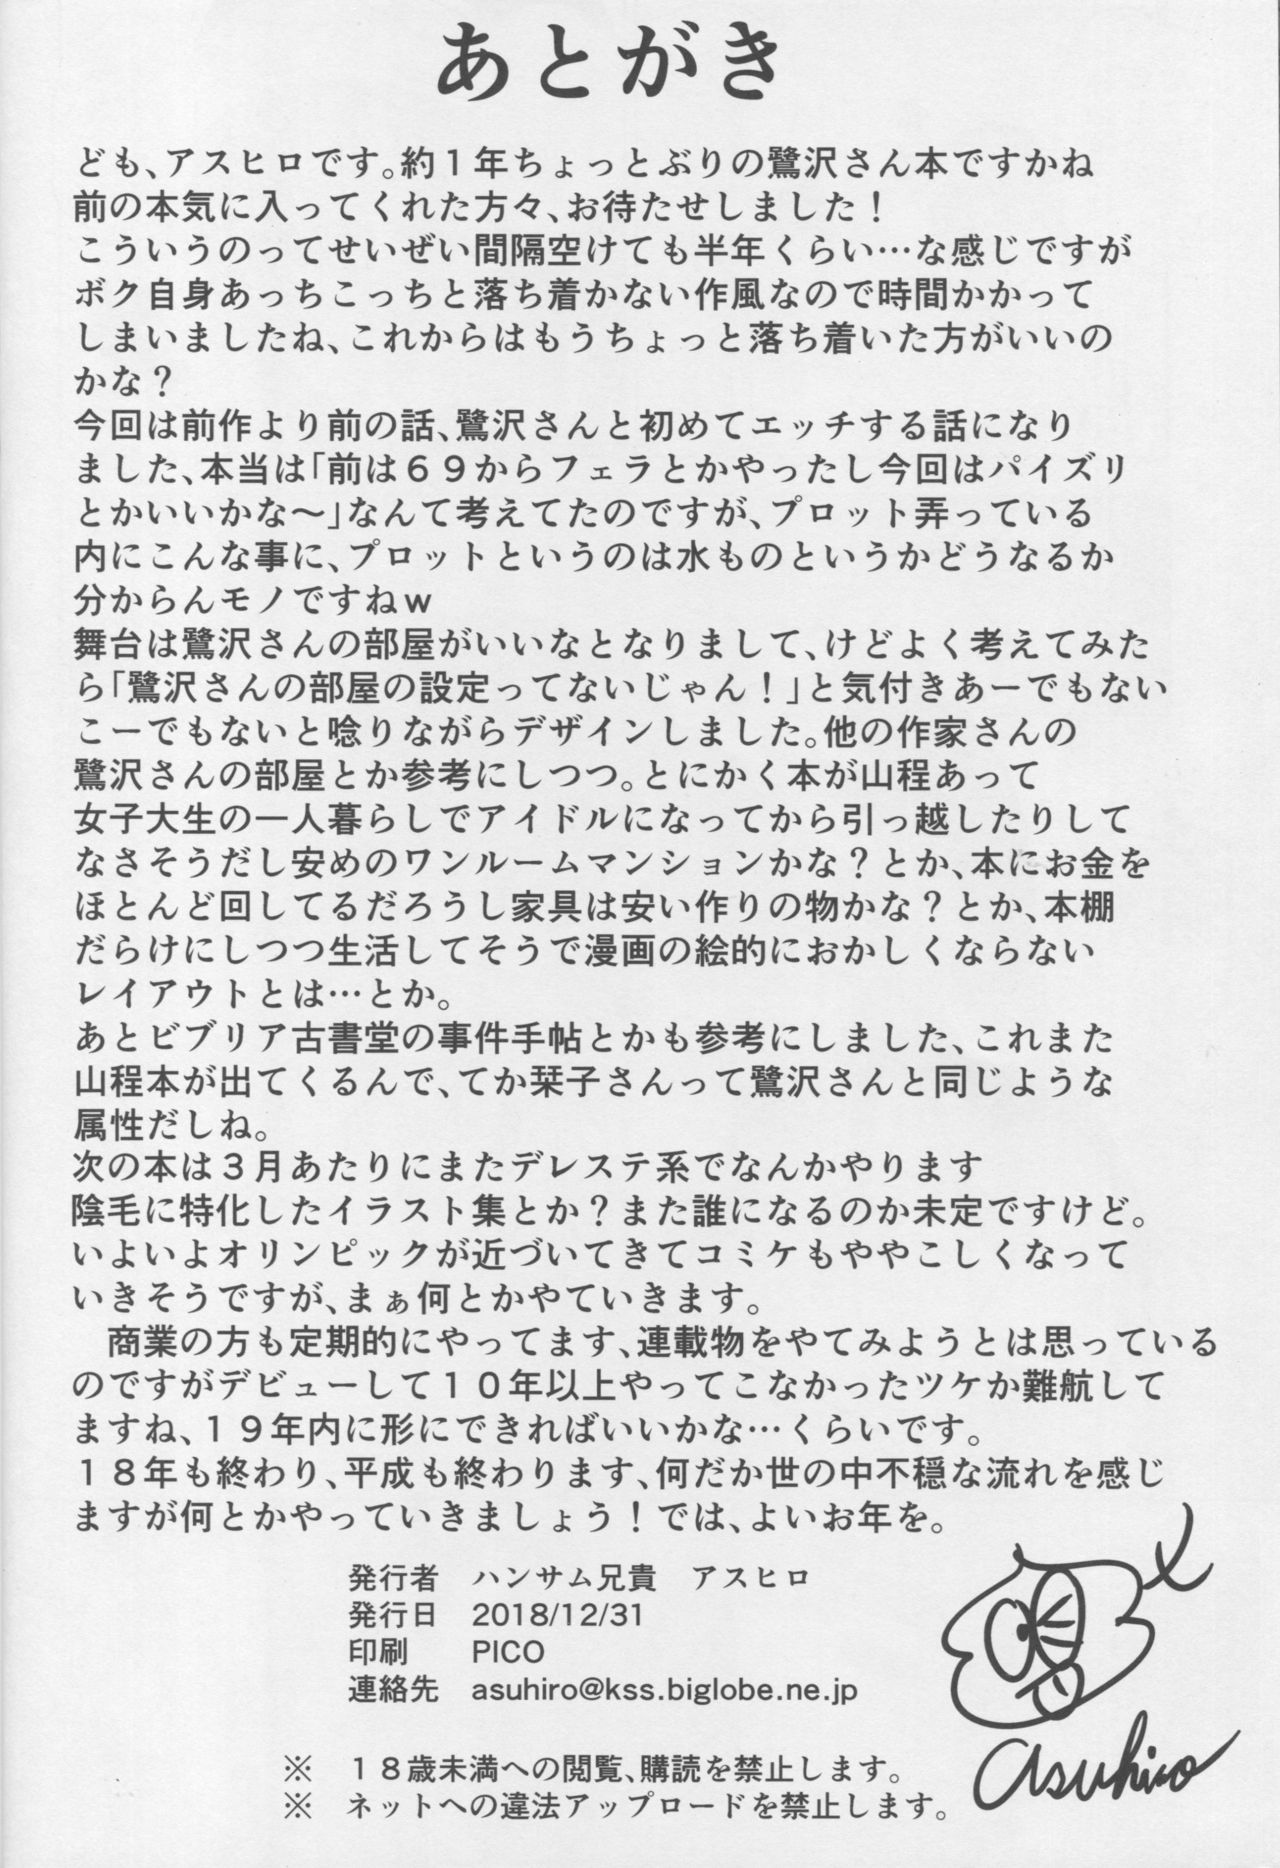 あとがき
ども、アスヒロです。約１年ちょっとぶりの鷺沢さん本ですかね
前の本気に入ってくれた方々、お待たせしました！
こういうのってせいぜい間隔空けても半年くらい…な感じですが
ボク自身あっちこっちと落ち着かない作風なので時間かかって
しまいましたね、これからはもうちょっと落ち着いた方がいいの
かな？
今回は前作より前の話、鷺沢さんと初めてエッチする話になり
ました、本当は「前は６９からフェラとかやったし今回はパイズリ
とかいいかな～」なんて考えてたのですが、プロット弄っている
内にこんな事に、プロットというのは水ものというかどうなるか
分からんモノですねｗ
舞台は鷺沢さんの部屋がいいなとなりまして、けどよく考えてみた
ら「鷺沢さんの部屋の設定ってないじゃん！」と気付きあーでもない
こーでもないと唸りながらデザインしました。他の作家さんの
鷺沢さんの部屋とか参考にしつつ。とにかく本が山程あって
女子大生の一人暮らしでアイドルになってから引っ越したりして
なさそうだし安めのワンルームマンションかな？とか、本にお金を
ほとんど回してるだろうし家具は安い作りの物かな？とか、本棚
だらけにしつつ生活してそうで漫画の絵的におかしくならない
レイアウトとは…とか。
あとビブリア古書堂の事件手帖とかも参考にしました、これまた
山程本が出てくるんで、てか栞子さんって鷺沢さんと同じような
属性だしね。
次の本は３月あたりにまたデレステ系でなんかやります
陰毛に特化したイラスト集とか？また誰になるのか未定ですけど。
いよいよオリンピックが近づいてきてコミケもややこしくなって
いきそうですが、まぁ何とかやていきます。
　商業の方も定期的にやってます、連載物をやてみようとは思っている
のですがデビューして１０年以上やってこなかったツケか難航して
ますね、１９年内に形にできればいいかな…くらいです。
１８年も終わり、平成も終わります、何だか世の中不穏な流れを感じ
ますが何とかやっていきましょう！では、よいお年を。
発行者　ハンサム兄貴　アスヒロ
発行日　2018/12/31
印刷　　PICO
連絡先　asuhiro@kss.biglobe.ne.jp
asuhiro
※　１８歳未満への閲覧、購読を禁止します。
※　ネットへの違法アップロードを禁止します。